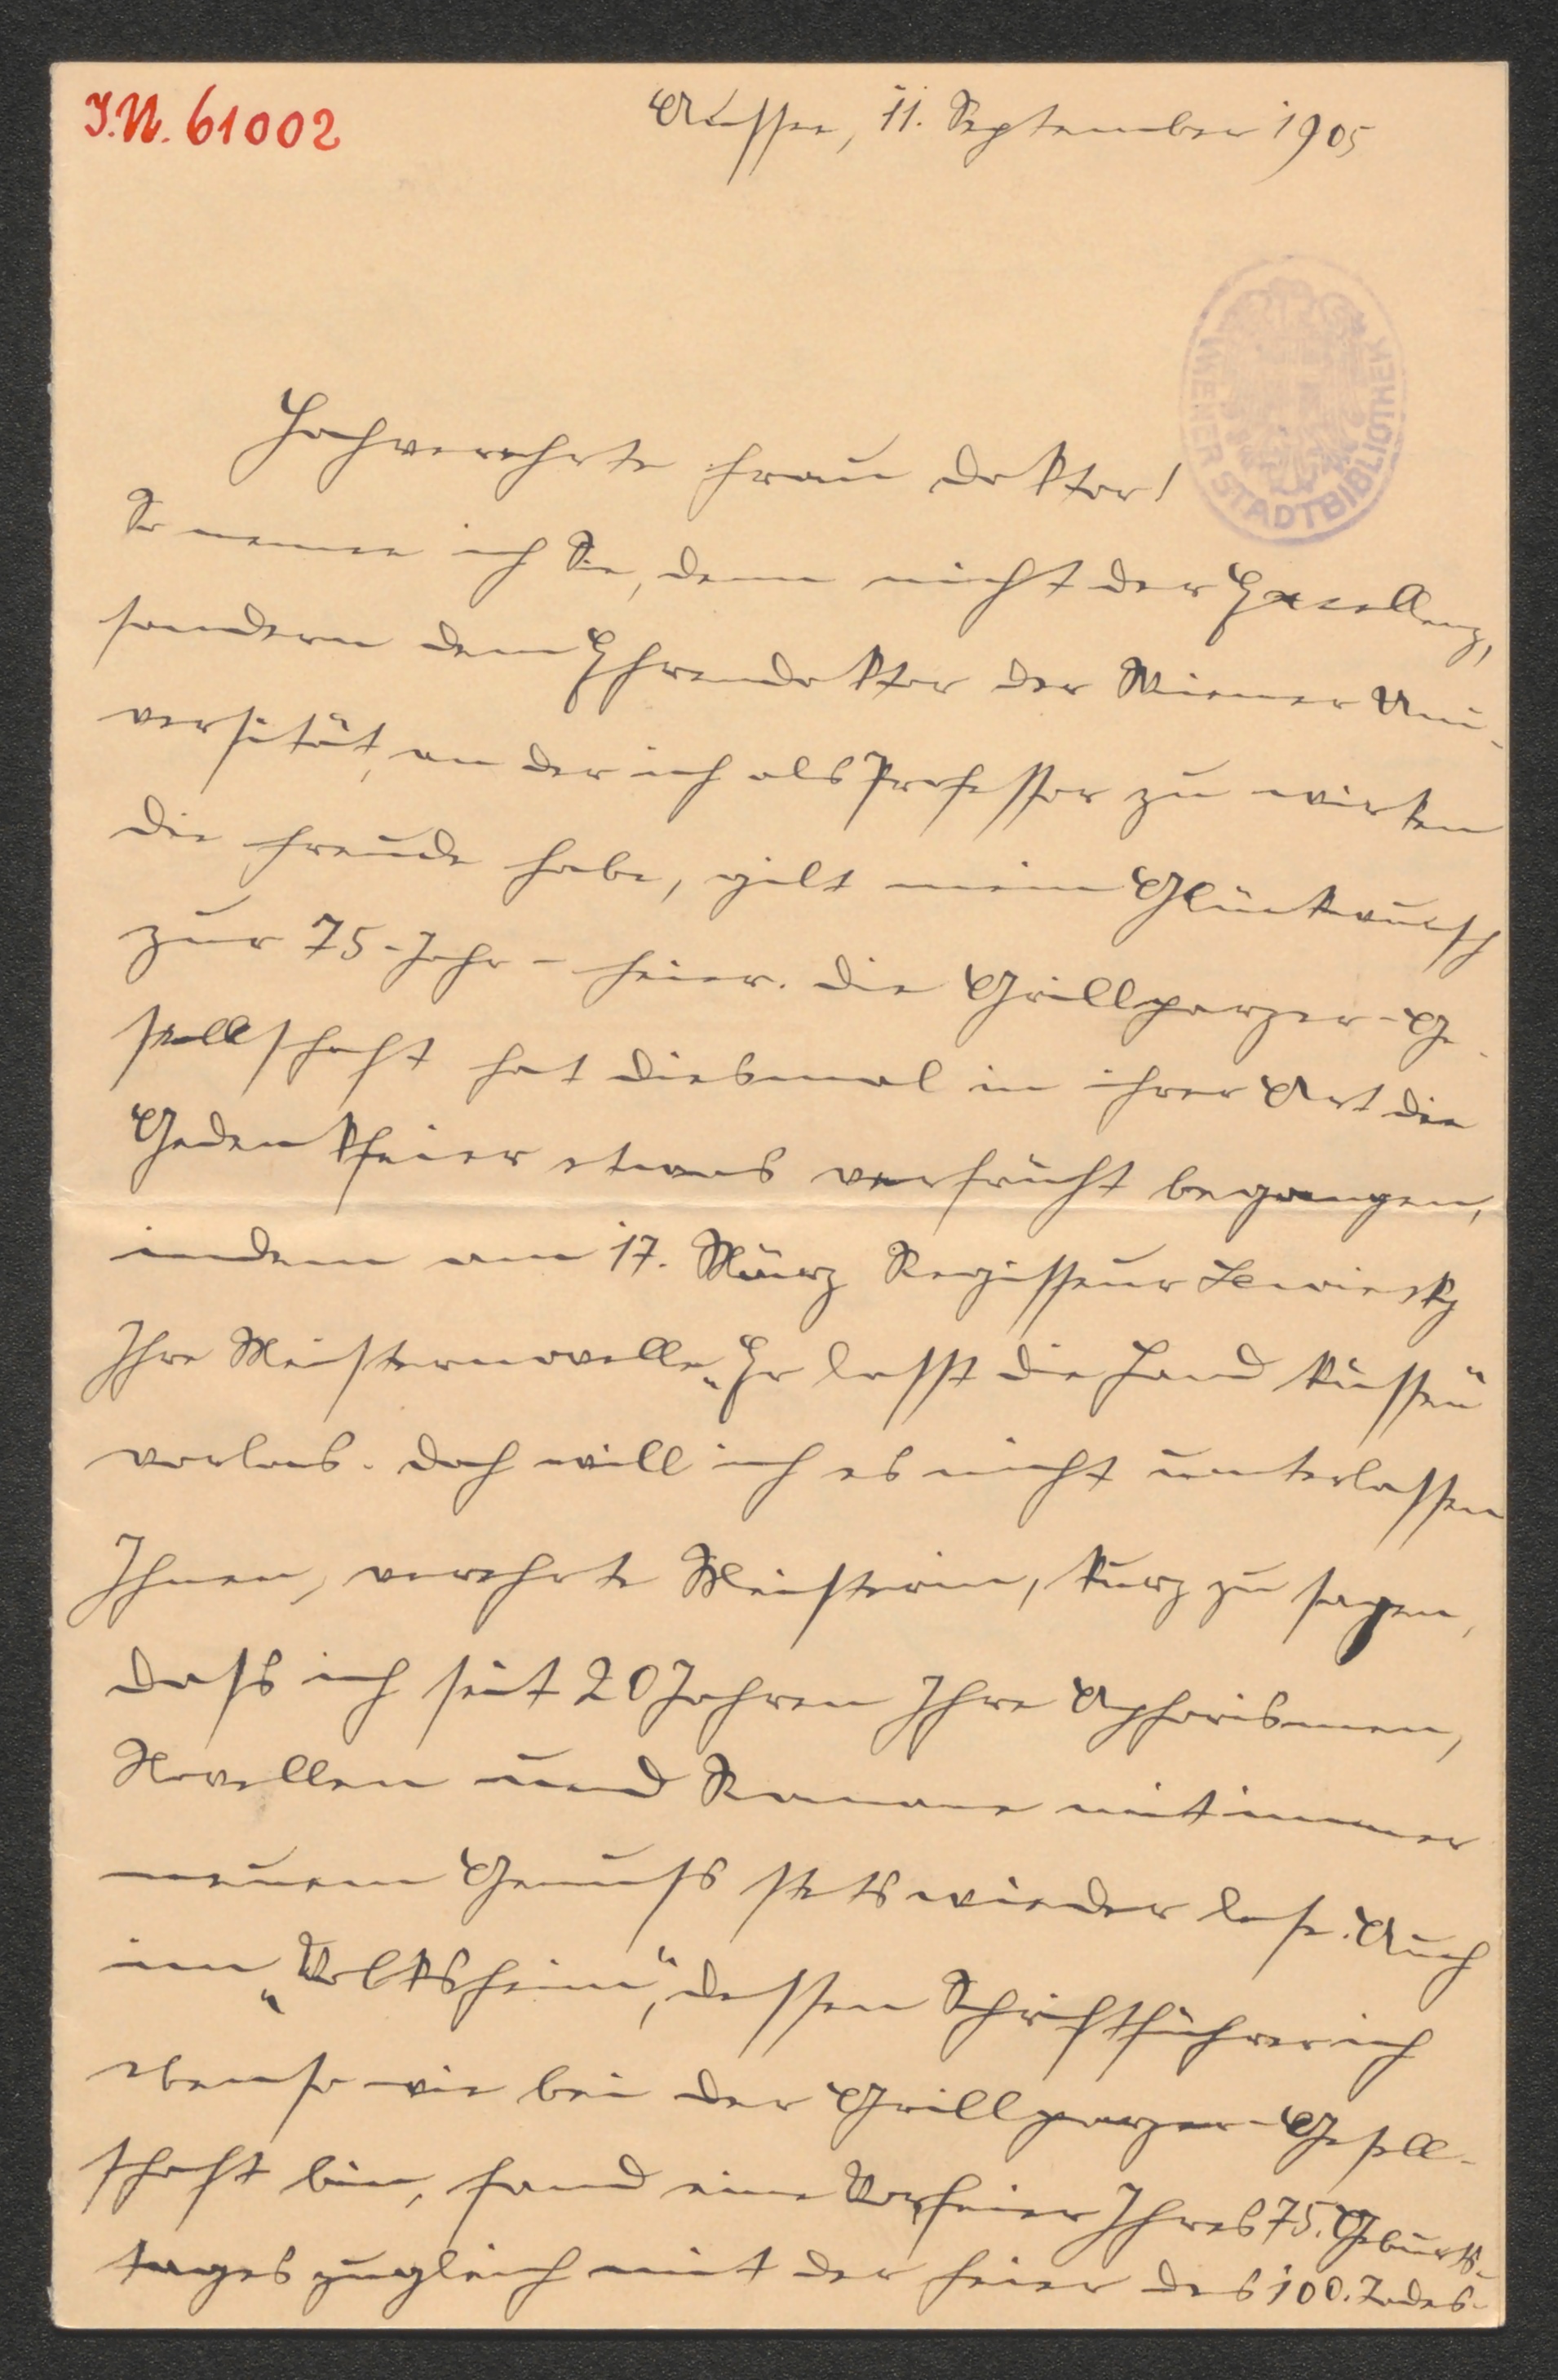 I.N. 61002
Aussee, 11. September 1905
WIENER STADTBIBLIOTHEK
Hochverehrte Frau Doktor!
So nenne ich Sie, denn nicht der Excellenz,
sondern dem Ehrendoktor der Wiener Uni-
versität, an der ich als Professor zu wirken
die Freude habe, gilt mein Glückwunsch
zur 75-Jahr-Feier. Die Grillparzer-Ge-
sellschaft hat diesmal in ihrer Art die
Gedenkfeier etwas verfrüht begangen,
indem am 17. März Regisseur Lewinsky
Ihre Meisternovelle „Er lasst die Hand küssen“
vorlas. Doch will ich es nicht unterlassen
Ihnen, verehrte Meisterin, kurz zu sagen,
dass ich seit 20 Jahren Ihre Aphorismen,
Novellen und Romane mit immer
neuem Genuss stets wieder lese. Auch
im „Volksheim“, dessen Schriftführer ich
ebenso wie bei der Grillparzer-Gesell-
schaft bin, fand eine Vorfeier Ihres 75. Geburts-
tages zugleich mit der Feier des 100. Todes-